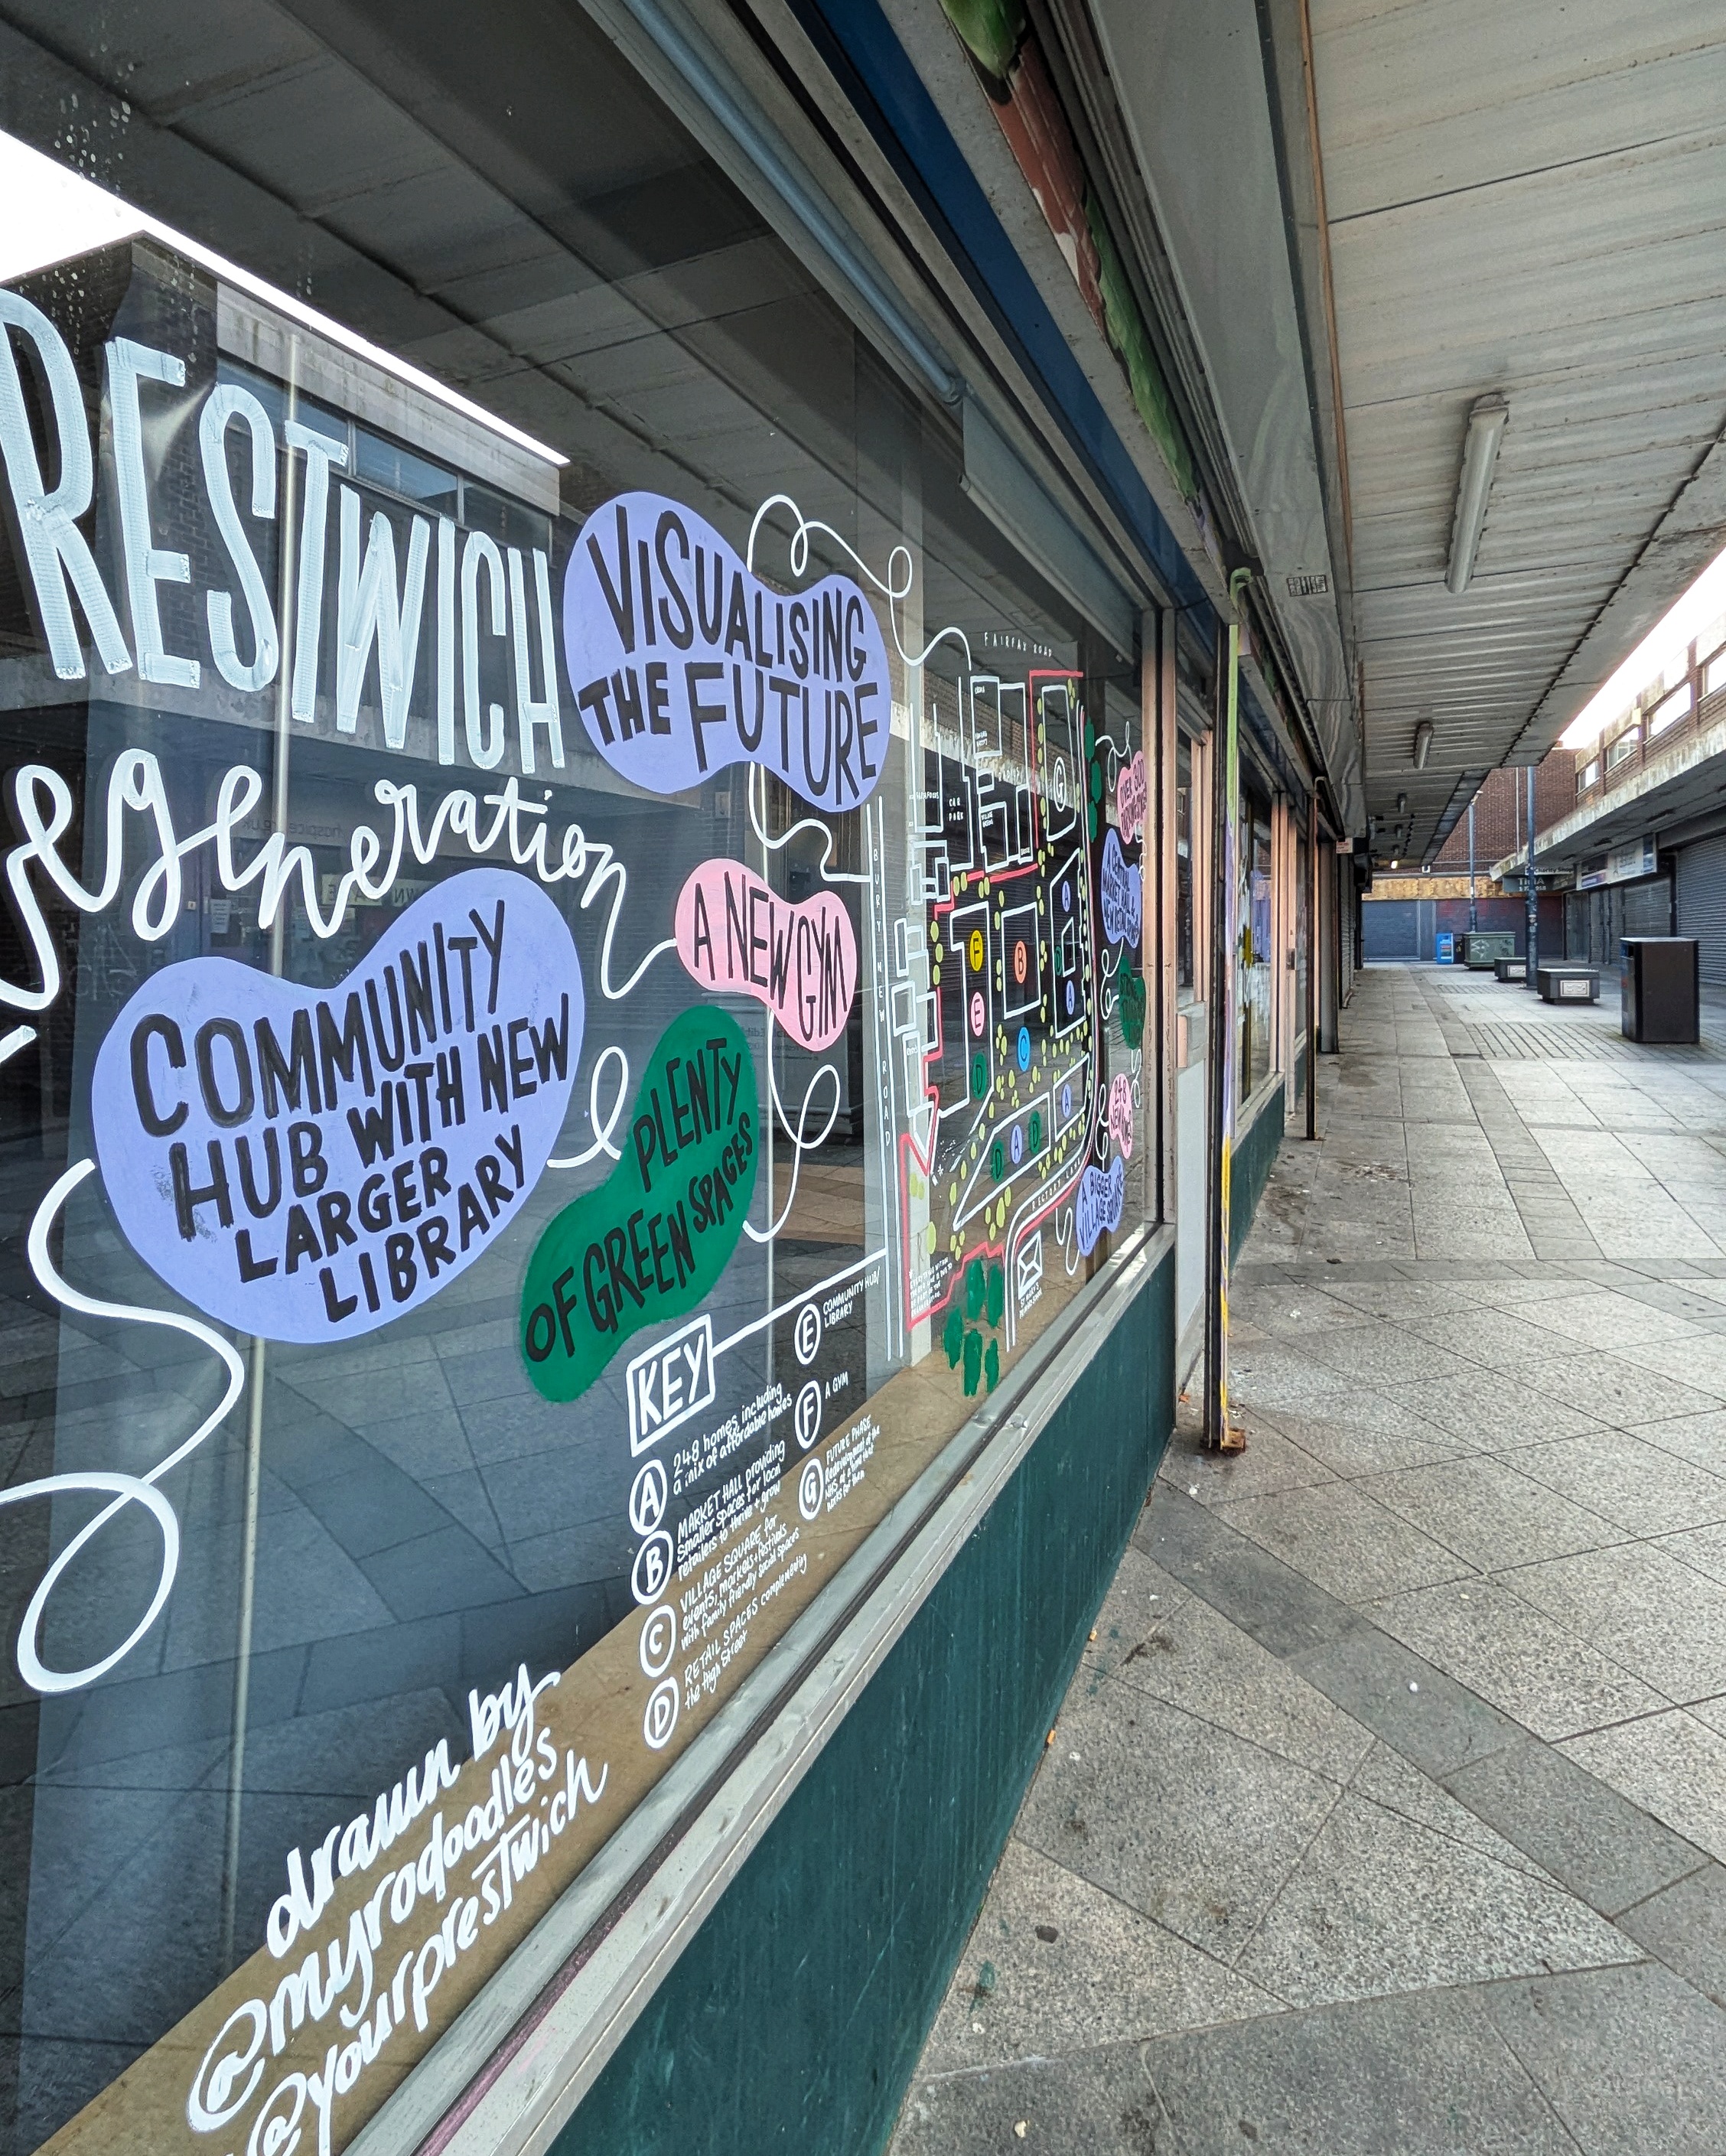 RESTWICH
egeneration
VISUALISING
THE FUTURE
A NEW GYM
COMMUNITY
HUB WITH NEW
LARGER
LIBRARY
PLENTY
OF GREEN SPACES
KEY
A
248 homes, including
a mix of affordable homes
B
MARKET HALL providing
smaller spaces for local
retailers to thrive + grow
C
VILLAGE SQUARE for
events, markets + festivals
with family friendly social spaces
D
RETAIL SPACES complementing
the High Street
E
COMMUNITY HUB/
LIBRARY
F
A GYM
G
FUTURE PHASE
drawn by
@myrodoodles
@yourprestwich
FAIRFAX ROAD
BURY NEW ROAD
CAR
PARK
RECTORY LANE
G
A
F
B
D
A
E
A
C
D
A
D
A
D
248
A BIGGER
VILLAGE SQUARE